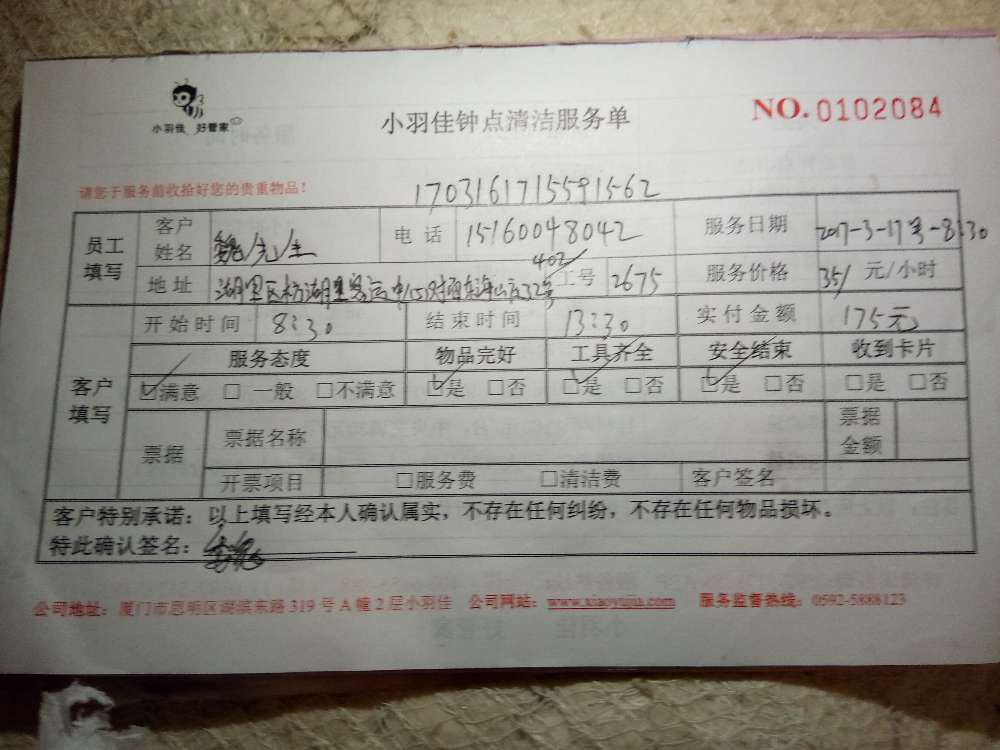 小羽佳 好管家
小羽佳钟点清洁服务单
NO.0102084
请您于服务前收拾好您的贵重物品！
1703161715591562
员工填写 客户姓名 魏/先/生 电话 15160048042 服务日期 2017-3-17号-8:30
地址 湖里区枋湖里客运中 32号 402 工号 2675 服务价格 35/ 元/小时
客户填写 开始时间 8:30 结束时间 13:30 实付金额 175元
服务态度 物品完好 工具齐全 安全结束 收到卡片
☑满意 □一般 □不满意 ☑是 □否 ☑是 □否 ☑是 □否 □是 □否
票据 票据名称 票据金额
开票项目 □服务费 □清洁费 客户签名
客户特别承诺：以上填写经本人确认属实，不存在任何纠纷，不存在任何物品损坏。
特此确认签名：
公司地址：厦门市思明区湖滨东路319号A幢2层小羽佳 公司网站：www.xiaoyujia.com 服务监督热线：0592-5888123